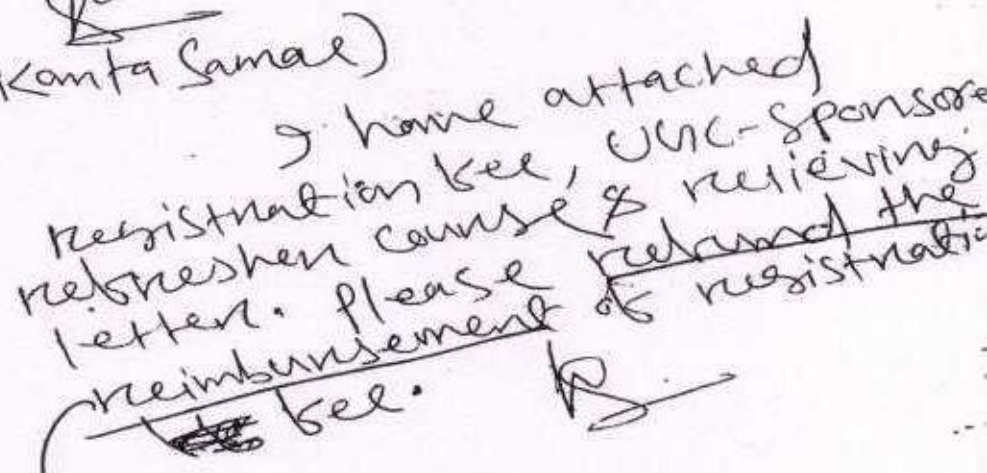 Kanta Samal)
I have attached
registration fee, UGC-Sponsore
refresher course & relieving
letter. Please refund the
reimbursement of registratio
fee.